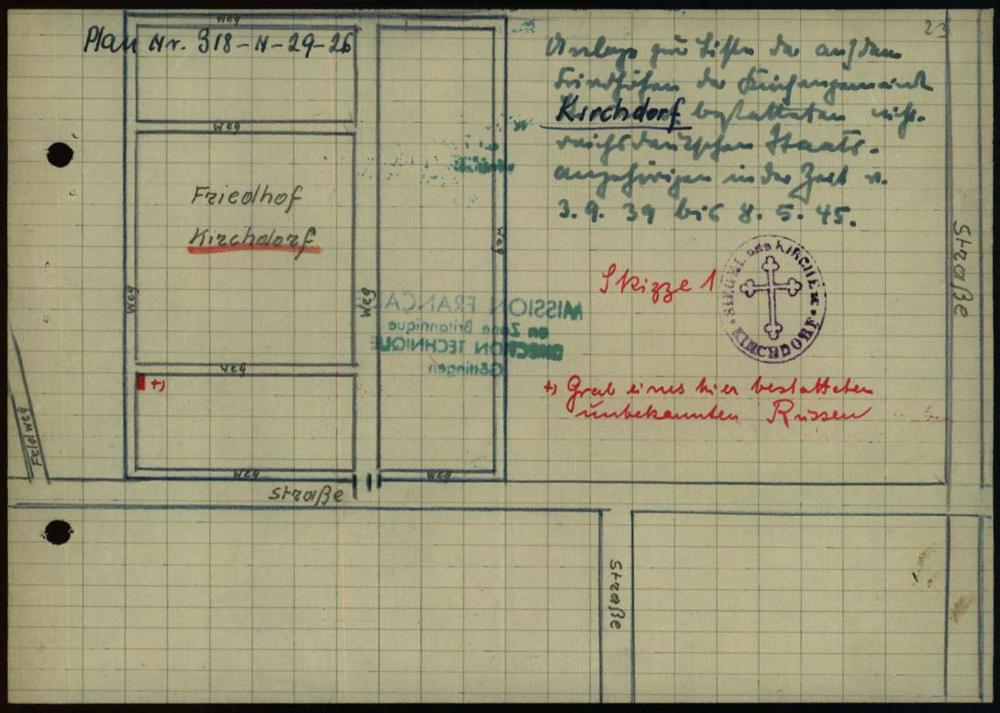 23
Weg
Plan Nr. 318-N-29-26
Weg
Friedhof
Kirchdorf
Weg
Weg
Weg
Weg
+)
Weg
Weg
Straße
Feldweg
Anlage zur Liste der auf dem
Friedhöfen der Kirchengemeinde
Kirchdorf bestatteten nicht-
reichsdeutschen Staats-
angehörigen in der Zeit v.
3. 9. 39 bis 8. 5. 45.
Skizze 1
SIEGEL DER KIRCHE
KIRCHDORF
+) Grab eines hier bestatteten
unbekannten Russen
MISSION FRANCA
en Zone Britannique
DIRECTION TECHNIQUE
Göttingen
Straße
Straße